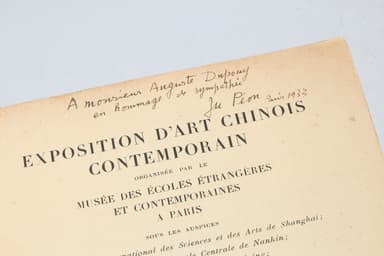 A monsieur Auguste Dupouy
en hommage de sympathie
Ju Péon Juin 1933
EXPOSITION D'ART CHINOIS
CONTEMPORAIN
ORGANISÉE PAR LE
MUSÉE DES ÉCOLES ÉTRANGÈRES
ET CONTEMPORAINES
A PARIS
SOUS LES AUSPICES
national des Sciences et des Arts de Shanghai;
le Centrale de Nankin;